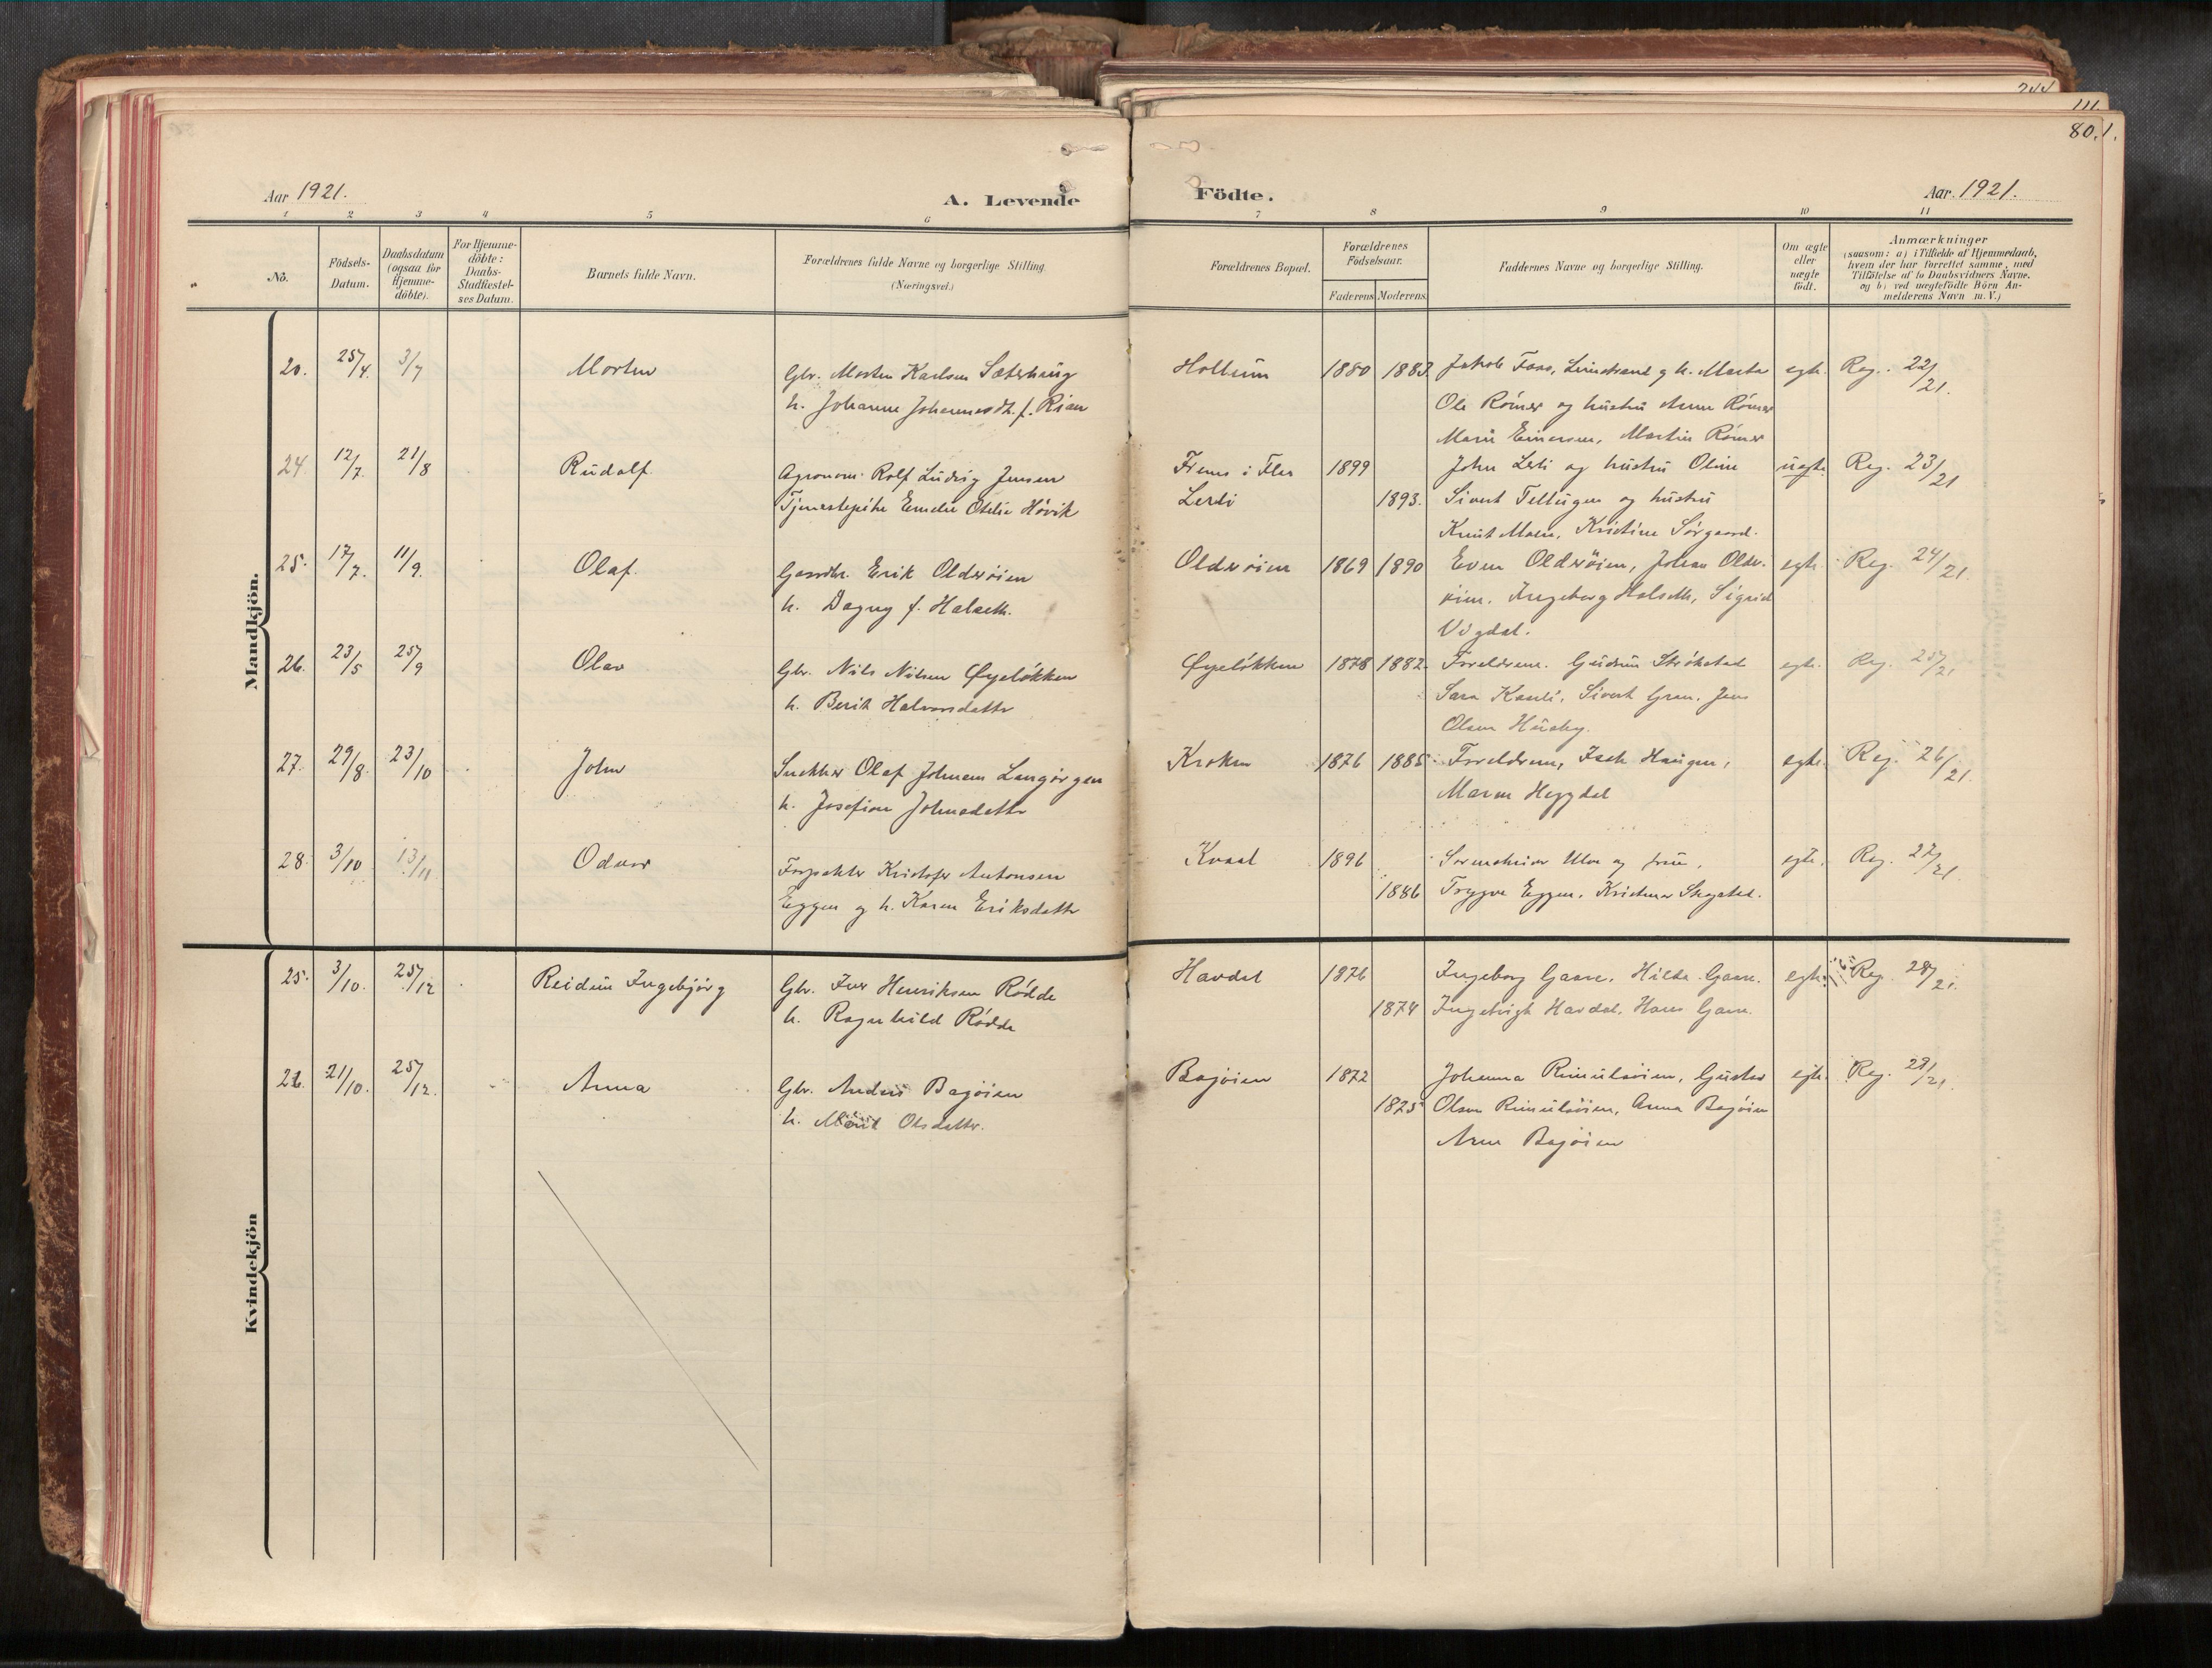 244
111.
80.1.
Aar 1921.
A. Levende
Födte.
Aar 1921.
1 2 3 4 5 6 7 8 9 10 11
No.
Födsels-Datum.
Daabsdatum (ogsaa for Hjemme-döbte).
For Hjemme-döbte: Daabs-Stadfæstel-ses Datum.
Barnets fulde Navn.
Forældrenes fulde Navne og borgerlige Stilling
(Næringsvei.)
Forældrenes Bopæl.
Forældrenes Födselsaar.
Faderens Moderens
Faddernes Navne og borgerlige Stilling.
Om ægte eller uægte födt.
Anmærkninger
(saasom: a) i Tilfælde af Hjemmedaab,
hvem der har forrettet samme, med
Tilföielse af to Daabsvidners Navne.
og b) ved uægtefödte Börn An-
melderens Navn m. V.)
Mandkjön.
20. 25/4. 3/7 Morten Gbr. Morten Karlsen Sæterhaug Holtum 1880 1883. Jakob Foss, og h. Marta egte. Reg. 22/21.
h. Johanne Johannesdt. f. Rian Ole Römer og hustru Anne Römer
Marie Einersen, Martin Römer
24. 12/7. 21/8 Rudolf. Agronom Rolf Ludvig Jensen 1899 John Lerli og hustru Oline uegte. Reg. 23/21
Tjenestepike Emelie Otelie Hövik Lerli 1893. Sivert og hustru
Knut Moen, Kristine Sörgaard.
25. 17/7. 11/9. Olaf. Gaardbr. Erik Oldervöien Oldervöien 1869 1890 Even Oldervöien, Johan Older- egte. Reg. 24/21.
h. Dagny f. Halseth. vöien. Ingeborg Halseth, Sigrid
Vigdal.
26. 23/5 25/9 Olav Gbr. Nils Nilsen Øyelökken Øyelökken 1878 1882. Foreldrene. Gudrun egte. Reg. 25/21
h. Berit Halvorsdatter Sara Sivert Gran. Jens
Olsen Husby.
27. 29/8. 23/10 John Snekker Olaf Johnsen Langörgen Kroken 1876 1885 Foreldrene, Haugen, egte. Reg. 26/21.
h. Josefine Johnsdatter Maren Heggdal
28. 3/10 13/11 Odvar Forpakter Kristofer Antonsen Kvaal 1896 og frue. egte. Reg. 27/21.
Eggen og h. Karen Eriksdatter 1886 Trygve Eggen.
Kvindekjön
25. 3/10. 25/12 Reidun Ingebjörg Gbr. Iver Henriksen Rödde Havdal 1876 Ingeborg Gaare. Hilda Gaare. egte. Reg. 28/21.
h. Ragnhild Rödde 1874 Havdal. Hans Gaare.
26. 21/10. 25/12. Anna Gbr. Anders Bagöien Bagöien 1872 Johanna Rimulöien, Gustav egte. Reg. 29/21.
h. Marit Olsdatter. 1875 Olsen Rimulöien, Anna Bagöien
Arne Bagöien